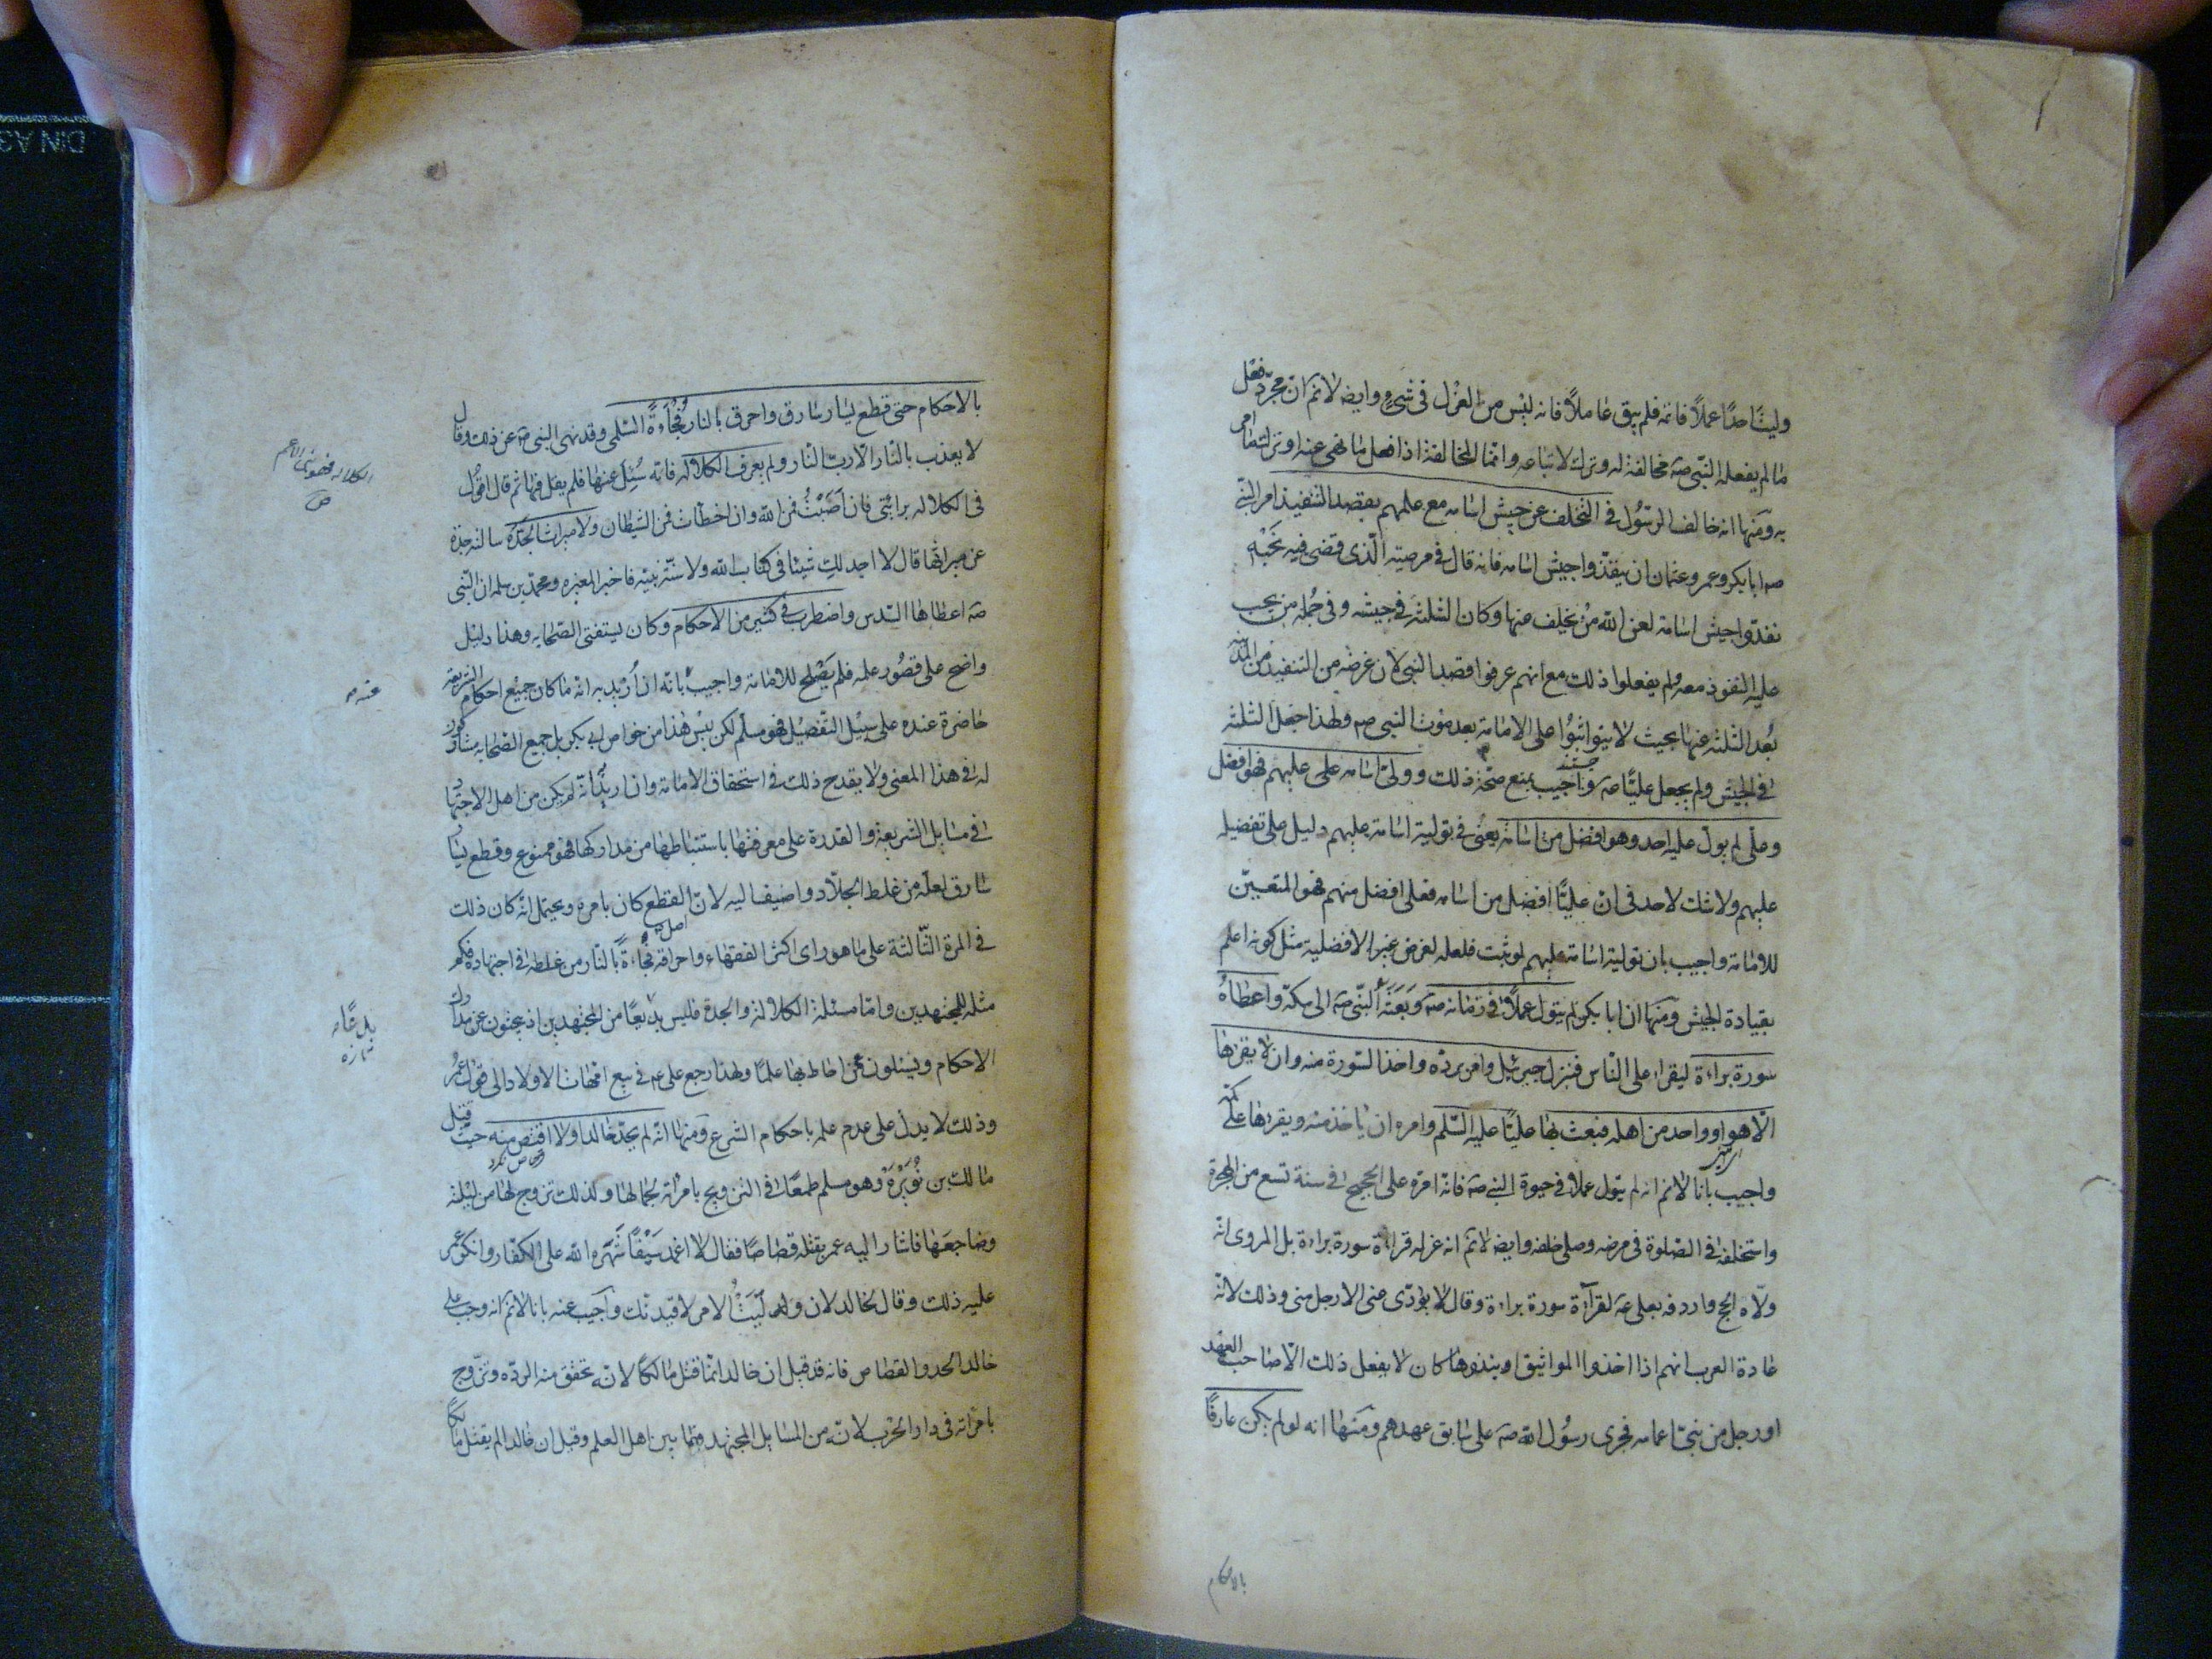 وليتا حدًا عملًا فاتمه فلم يبق عاملًا فانه ليس من العزل فى شئ وايضا لانم ان مجرّد فعل
ما لم يفعله النبى صه مخالفة له وترك لاتباعه وانما المخالفة اذا فعل ما نهى عنه او ترك ما امر
به ومنها انه خالف الرسُول فى التخلف عن جيش اسامه مع علمهم بقصد التنفيذ امر النبى
صه ابا بكر وعمر وعثمان ان ينفذوا جيش اسامه فانه قال فى مرضه الّذى قضى فيه نحبه
نفذوا جيش اسامة لعن الله من تخلف عنها وكان الثلثة فى جيشه وفى جُمله من يجب
عليه النفوذ معه ولم يفعلوا ذلك مع انهم عرفوا قصد النبى لان غرضه من التنفيذ من المدينه
بُعد الثلثه عنها بحيث لا يتواثبوا على الامامة بعد موت النبى صه ولهذا جعل الثلثه
فى الجيش ولم يجعل عليًّا عه واجيب بمنع صحّة ذلك وولى اسامه على عليهم فهو افضل
وعلى لم يول عليه احد وهو افضل من اسامة يعنى فى تولية اسامة عليهم دليل على تفضيله
عليهم ولا شك لاحد فى ان عليًّا افضل من اسامه فعلى افضل منهم فهو المتعيّن
للامامة واجيب بان تولية اسامة عليهم لو ثبت فلعله لغرض غير الافضلية مثل كونه اعلم
بقيادة الجيش ومنها ان ابا بكر لم يتول عملًا فى زمانه صه وبَعَثَهُ النّبى صه الى مكة واعطاهُ
سورة براءة ليقراء على النّاس فنزل جبرئيل وامر برده واخذ السّورة منه وان لا يقرءها
الّا هو او واحد من اهله فبعث بها عليًّا عليه السّلم وامره ان ياخذ منه ويقرءها على
واجيب بانا لانم انه لم يتول عملا فى حيوة النبى صه فانه امره على الحجيج فى سنة تسع من الهجرة
واستخلفه فى الصّلوة فى مرضه وصلى خلفه وايضا لانم انه عزله قراءة سورة براءة بل المروى انّه
ولّاه الحج واردفه بعلى عه لقراءة سورة براءة وقال لا يؤدّى عنى الا رجل منى وذلك لانّه
عادة العرب انهم اذا اخذوا المواثيق او ينبذوها كان لا يفعل ذلك الّا صاحب العهد
او رجل من بنى اعمامه فجرى رسُول الله صه على سابق عهدهم ومنها انه لو لم يكن عارفًا
بالاحكام
بالاحكام حتى قطع يسار سارق واحرق بالنار فُجْاءَةً السّلمى وقد نهى النبى صه عن ذلك وقال
لا يعذب بالنّار الّا ربّ النّار ولم يعرف الكلاله فانه سُئِلَ عنها فلم يقل فيها ثم قال اقولُ
فى الكلاله برائى فان اَصَبْتُ فمن الله وان اخطأت فمن الشيطان ولا ميراث الجدّه سالته جدّة
عن ميراثها قال لا اجد لكِ شيئا فى كتاب الله ولا سنّة نبيّه فاخبر المغيره ومحمد بن سلمه ان النّبى
صه اعطاها السّدس واضطرب فى كثير من الاحكام وكان يستفتى الصّحابه وهذا دليل
واضح على قصُور علمه فلم يَصْلح للامامة واجيب بانّه ان اُريد به انه ما كان جميع احكام الشريعه
حاضرة عنده على سبيل التّفصيل فهو مسلّم لكن ليس هذا من خواص ابى بكر بل جميع الصّحابه مشاركون
له فى هذا المعنى ولا يقدح ذلك فى استحقاق الامامة وان اريد انّه لم يكن من اهل الاجتهاد
فى مسايل الشريعة والقدرة على معرفتها باستنباطها من مداركها فهو ممنوع وقطع يسار
سارق لعلّه من غلط الجلّاد واضيف اليه لانّ القطع كان بامره ويحتمل انّه كان ذلك
فى المرة الثّالثة على ما هو راى اكثر الفقهاء واحراقه فجاءةً بالنّار من غلطه فى اجتهاده فكم
مثله للمجتهدين وامّا مسئلة الكلالة والجدة فليس بدعًا من المجتهدين اذ يبحثون عن مدارك
الاحكام ويسئلون عمن احاط بها علمًا ولهذا رجع على عه فى بيع امّهات الاولاد الى قول عُمرُ
وذلك لا يدلّ على عدم علمه باحكام الشرع ومنها انّه لم يحدّ خالدا ولا اقتص منه حيث قتل
مالك بن نُوَيْرَهْ وهو مسلم طمعًا فى التزويج بامراته لجمالها ولذلك تزوج لها من ليلته
وضاجَعَها فاشار اليه عمر بقتله قصاصًا فقال لا اغمد سَيْفًا شَهَره الله على الكفار وانكر عمر
عليه ذلك وقال لخالد لان وليت الامر لاقيدنّك واجيب عنه بانا لانم انه وجب على
خالد الحد والقصاص فانه قد قيل ان خالدا انّما قتل مالكا لانّه تحقق منه الردّه وتزوج
بامراته فى دار الحرب لانّه من المسايل المجتهد فيها بين اهل العلم وقيل ان خالدا لم يقتل مالكًا